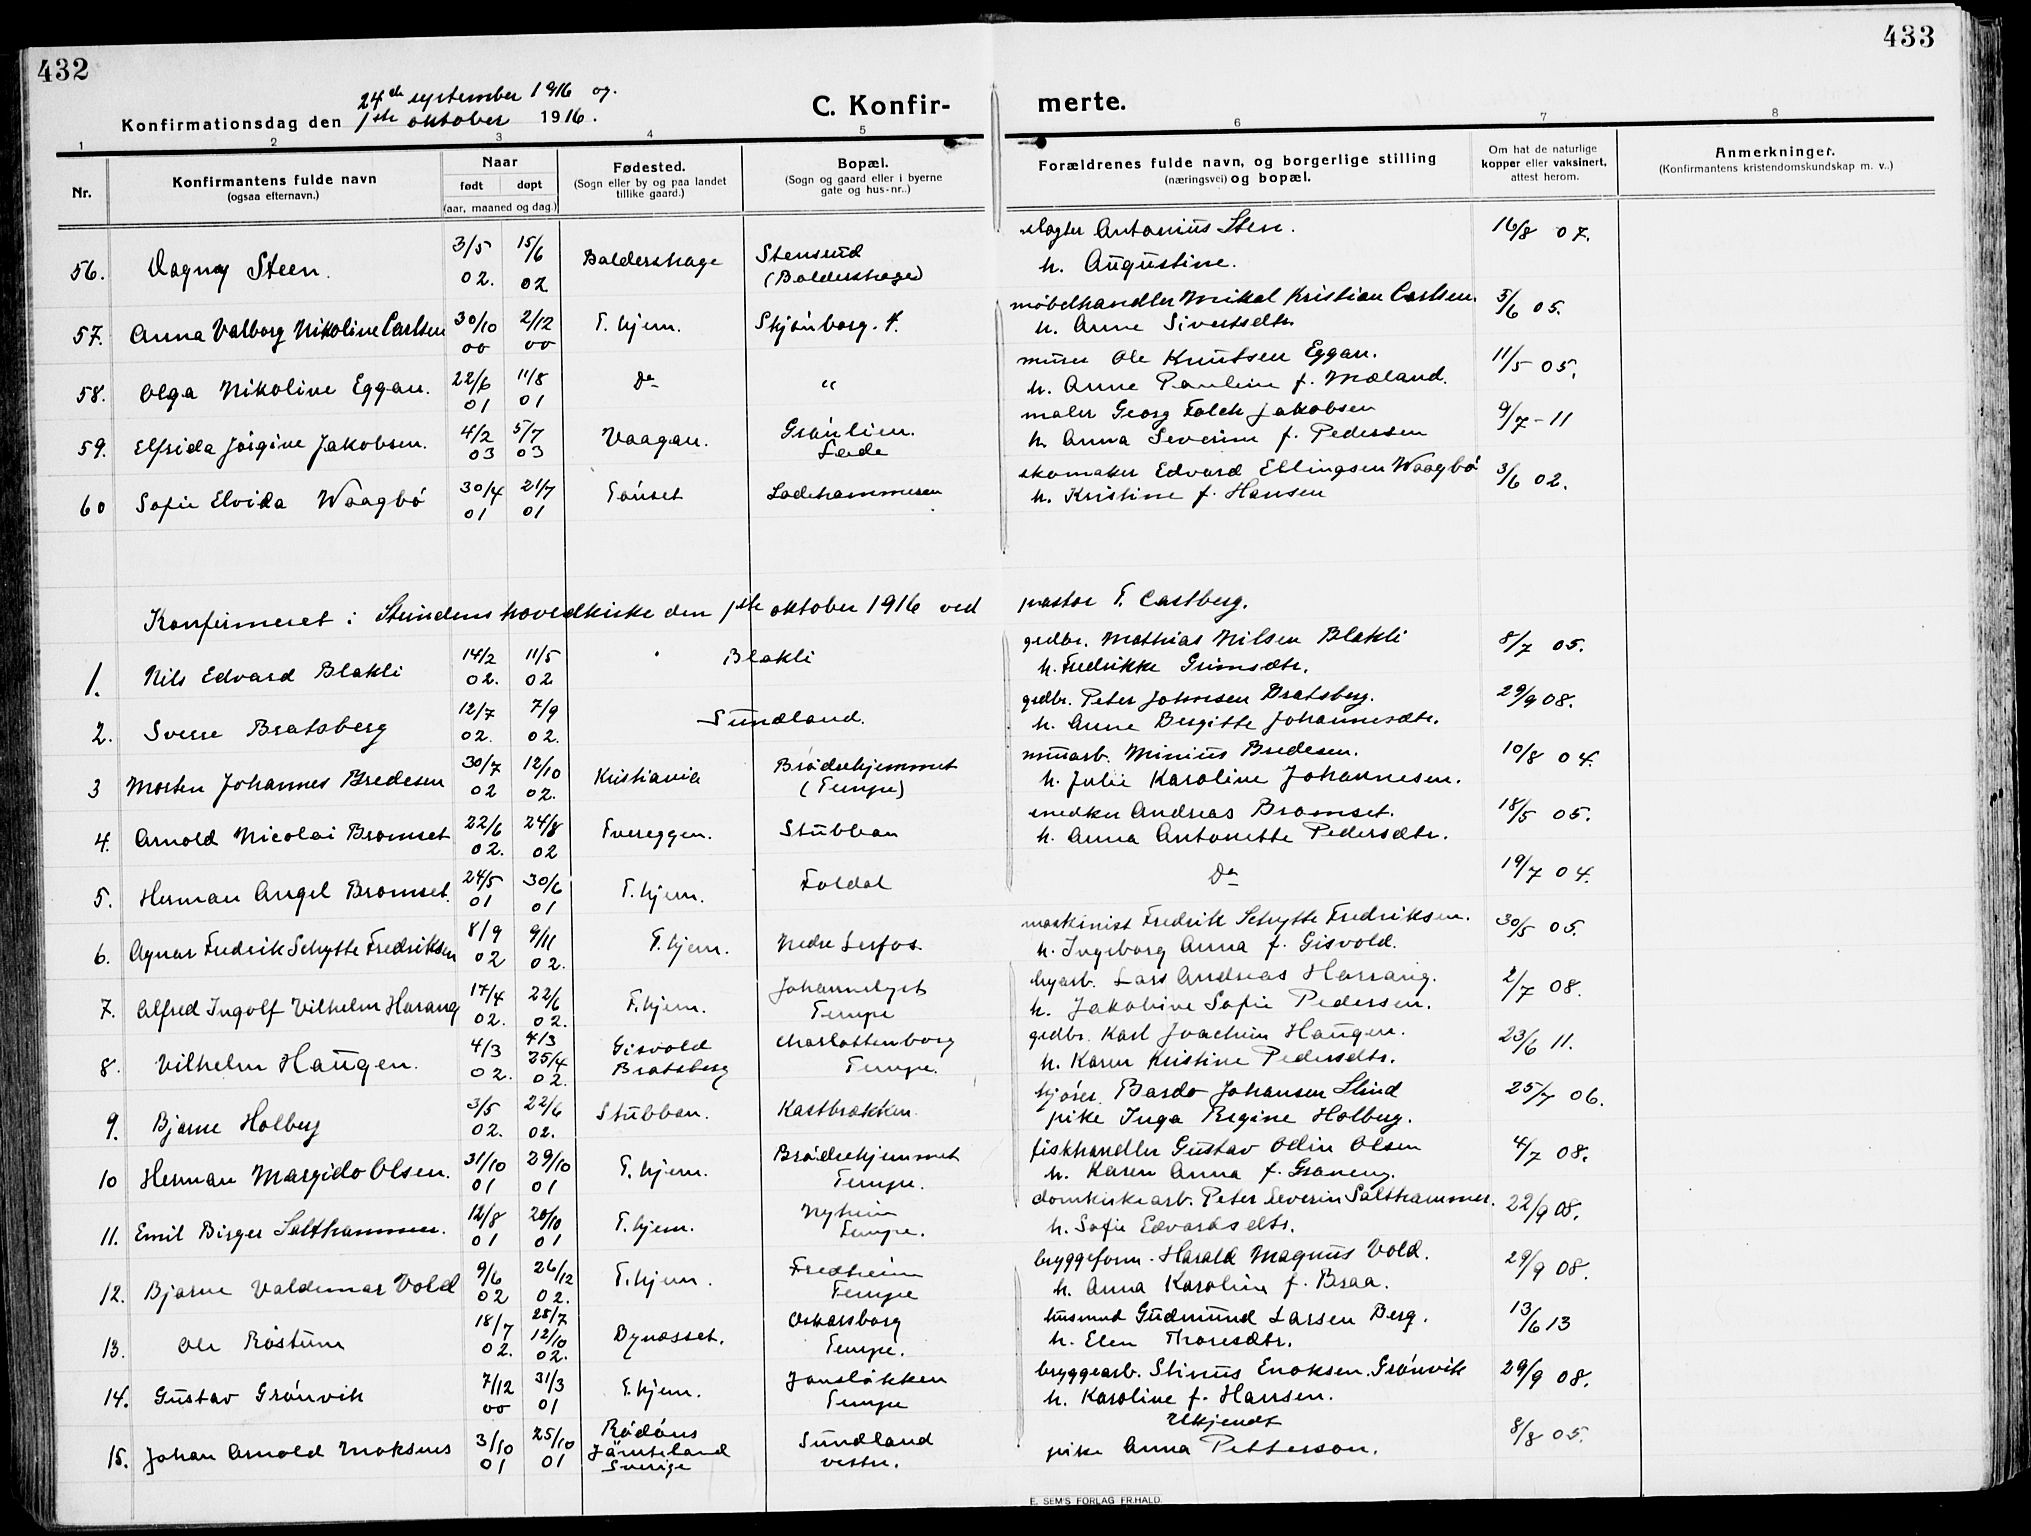 432
433
24de september 1916 og
Konfirmationsdag den 1ste oktober 1916.
C. Konfir-
merte.
1 2 3 4 5 6 7 8
Nr.
Konfirmantens fulde navn
(ogsaa efternavn.)
Naar
født døpt
(aar, maaned og dag.)
Fødested.
(Sogn eller by og paa landet
tillike gaard.)
Bopæl.
(Sogn og gaard eller i byerne
gate og hus-nr..)
Forældrenes fulde navn, og borgerlige stilling
(næringsvei) og bopæl.
Om hat de naturlige
kopper eller vaksinert,
attest herom.
Anmerkninger.
(Konfirmantens kristendomskundskap m. v..)
56. Dagny Steen. 3/5 02. 15/6 02 Baldershage Stensrud (Baldershage) slagter Antonius Sten. h. Augustine. 16/8 07.
57. Anna Valborg Nikoline Carlsen 30/10 00 2/12 00 T.hjem. Skjønborg. 4. møbelhandler Mikal Kristian Carlsen. h. Anne Sivertsdtr. 5/6 05.
58. Olga Nikoline Eggan. 22/6 01 11/8 01 Do " murer Ole Knutsen Eggan. h. Anne Pauline f. Mæland. 11/5 05.
59. Elfrida Jørgine Jakobsen. 4/2 03 5/7 03 Vaagan. Grønlien. Lade maler Georg Falck Jakobsen h. Anna Severine f. Pedersen 9/7 - 11
60 Sofie Elvida Waagbø 30/4 01 21/7 01 Tønset Ladehammeren skomaker Edvard Ellingsen Waagbø h. Kristine f. Hansen 3/6 02.
Konfirmeret i Strindens hovedkirke den 1ste oktober 1916 ved pastor T. Castberg.
1. Nils Edvard Blakli 14/2 02. 11/5 02 Blakli grdbr. Mathias Nilsen Blakli h. Fredrikke Grimsdtr. 8/7 05.
2. Sverre Bratsberg 12/7 02. 7/9 02. Sundland. grdbr. Peter Johnsen Bratsberg. h. Anne Bergitte Johannesdtr. 29/9 08.
3 Morten Johannes Bredesen 30/7 02 12/10 02. Kristiania Brøderhjemmet (Tempe) murarb. Minius Bredesen. h. Julie Karoline Johannesen. 10/8 04.
4. Arnold Nicolai Bromset 22/6 02. 24/8 02 Tvereggen. Stubban snedker Andreas Bromset. h. Anna Antonette Pedersdtr. 18/5 05.
5. Herman Angel Bromset. 24/5 01 30/6 01 T.hjem. Foldal Do 19/7 04.
6. Agnar Fredrik Schytte Fredriksen 8/9 02 9/11 02. T.hjem. Nedre Lerfos. maskinist Fredrik Schytte Fredriksen. h. Ingeborg Anna f. Gisvold. 30/5 05.
7. Alfred Ingolf Vilhelm Harang 17/4 02. 22/6 02. T.hjem. Johanneslyst Tempe byarb. Lars Andreas Harrang. h. Jakobine Sofie Pedersen. 2/7 08.
8. Vilhelm Haugen. 4/3 02. 4/3 25/4 02. Gisvold Bratsberg Charlottenborg Tempe. grdbr. Karl Joachim Haugen. h. Karen Kristine Pedersdtr. 23/6 11.
9. Bjarne Holberg 3/5 02. 22/6 02. Stubban. Kastbrækken. kjører Bardo Johansen Slind pike Inga Regine Holberg. 25/7 06.
10 Herman Margido Olsen. 31/10 01 29/10 01 T.hjem. Brøderhjemmet Tempe. fiskhandler Gustav Odin Olsen h. Karen Anna f. Graneng. 4/7 08.
11. Emil Birger Salthammer. 12/8 01 20/10 01 T.hjem. Nyheim Tempe. domkirkearb. Peter Severin Salthammer. h. Sofie Edvardsdtr. 22/9 08.
12. Bjarne Valdemar Vold 9/6 02 26/12 02. T.hjem. Fredheim Tempe bryggeform. Harald Magnus Vold. h. Anna Karoline f. Braa. 29/9 08.
13. Ole Røstum 18/7 02. 28/7 12/10 02. Bynesset. Oskarsborg Tempe. husmand Gudmund Larsen Berg. h. Elen Thoresdtr. 13/6 13
14. Gustav Grønvik 7/12 00 31/3 01 T.hjem. Jonsløkken Tempe bryggearb. Stinus Enoksen Grønvik h. Karoline f. Hansen. 29/9 08.
15. Johan Arnold Moksnes 3/10 01 25/10 01 Rødøns Jämtland Sverige Sundland vestre. Ukjendt pike Anna Petterson. 8/8 05.
E. SEM'S FORLAG FR.HALD.